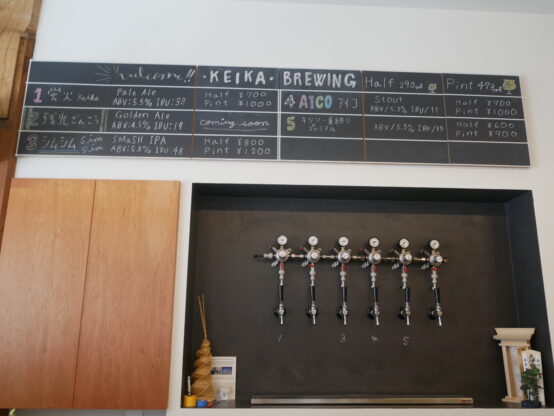 welcome!!
KEIKA
BREWING
Half 290ml
Pint 473ml
1 蛍火 Keika
Pale Ale
ABV:5.5% IBU:32
Half ¥700
Pint ¥1000
2
Golden Ale
ABV:4.5% IBU:19
coming soon
3 シムシム Sim Sim
SMaSH IPA
IBU:48
Half ¥800
Pint ¥1200
4 AICO アイコ
Stout
IBU:11
Half ¥700
Pint ¥1000
5 キリン一番搾り
プレミアム
ABV:5.5% IBU:15
Half ¥600
Pint ¥900
1
3
4
5